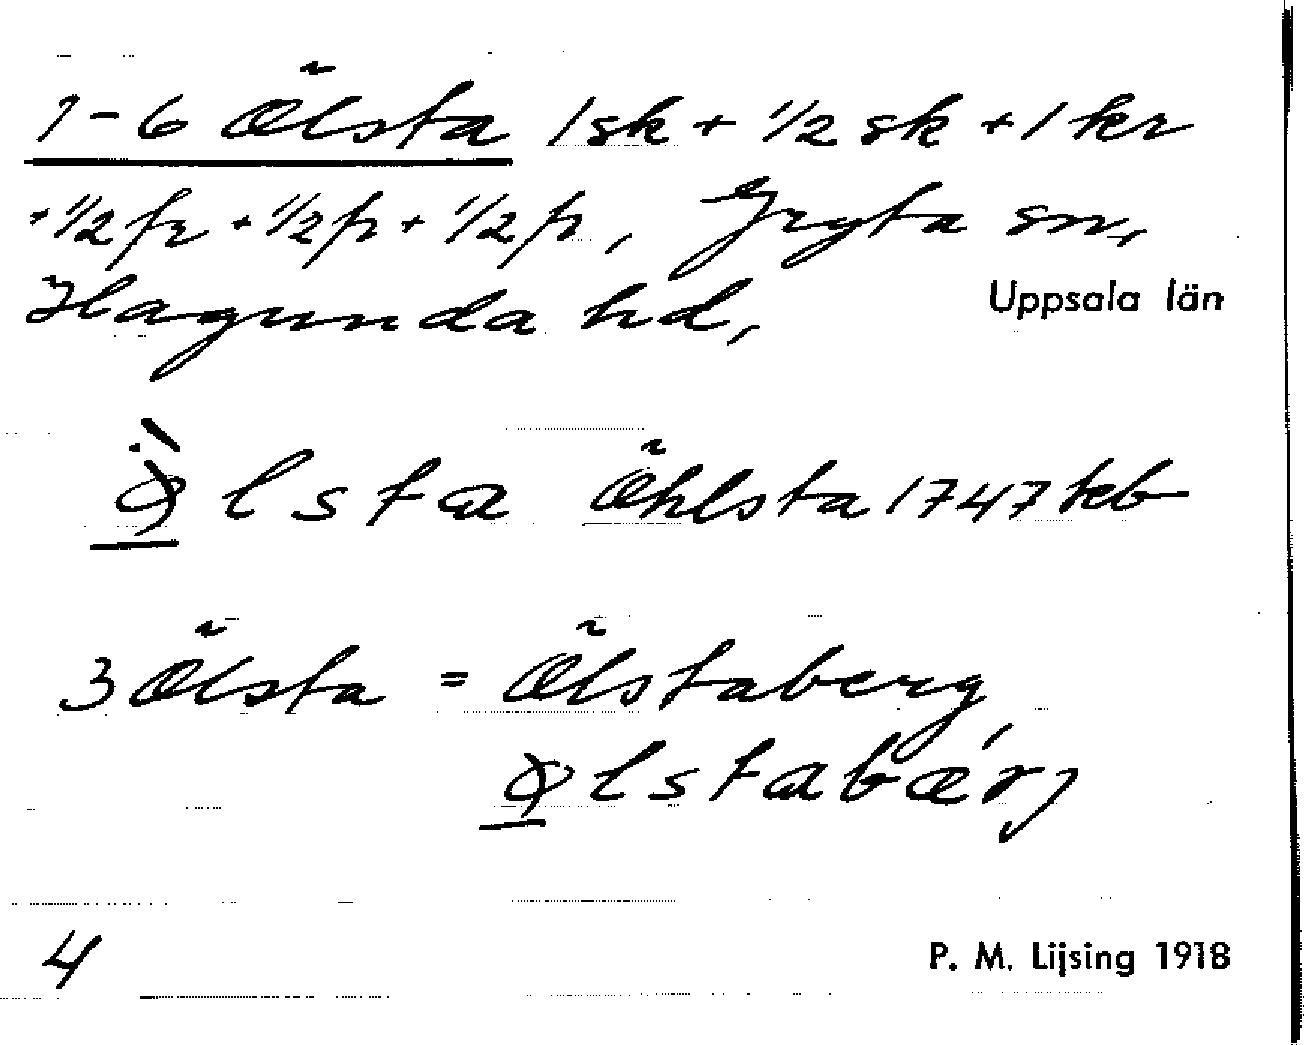 1-6 Ölsta 1 sk + 1/2 sk + 1 kr
+ 1/2 fr + 1/2 fr + 1/2 fr, Gryta sn,
Hagunda hd, Uppsala län
lsta Öhlsta 1747
3 Ölsta = Ölstaberg
lstabærj
4 P. M. Lijsing 1918